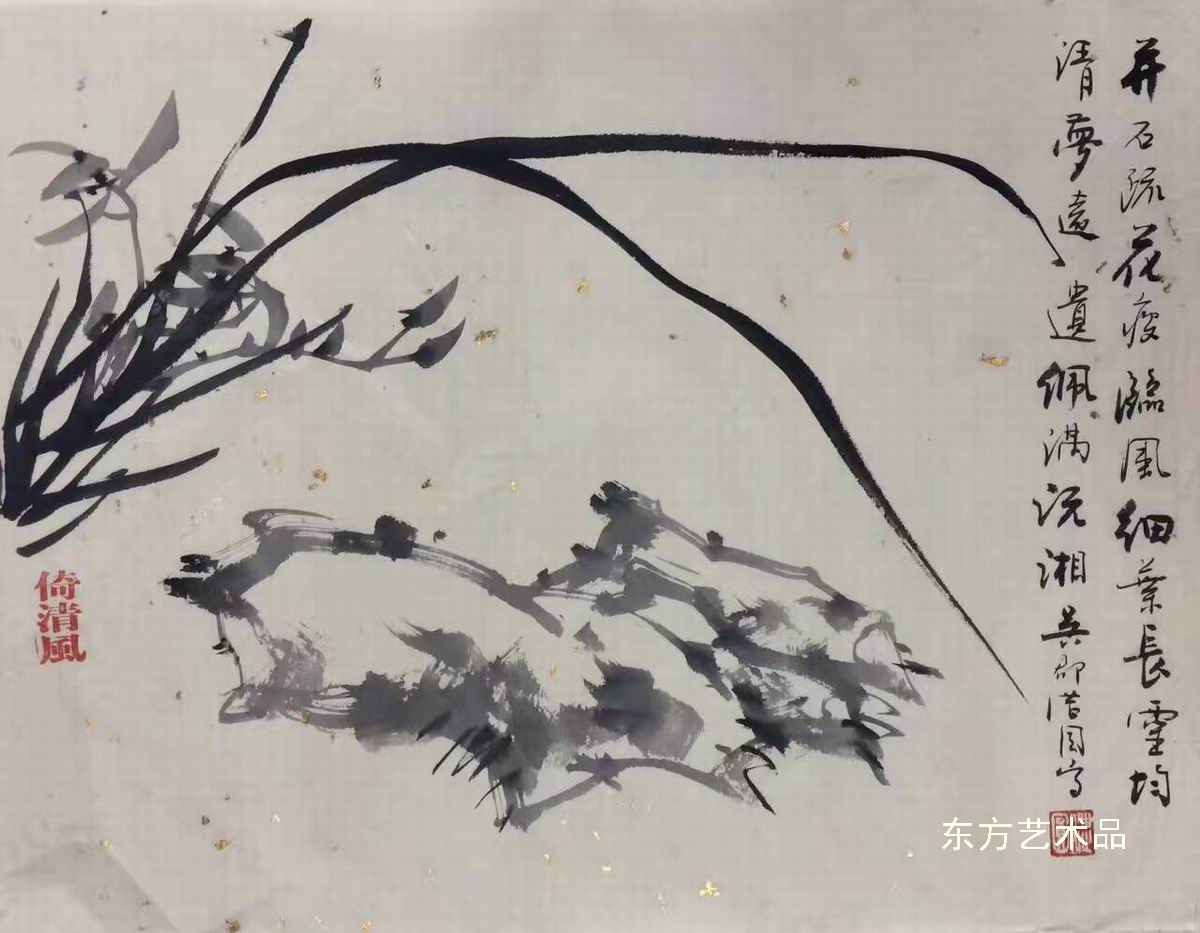 并石疏花瘦臨風細葉長靈均
清夢遠遺佩滿沅湘吳郡寫
倚清風
东方艺术品